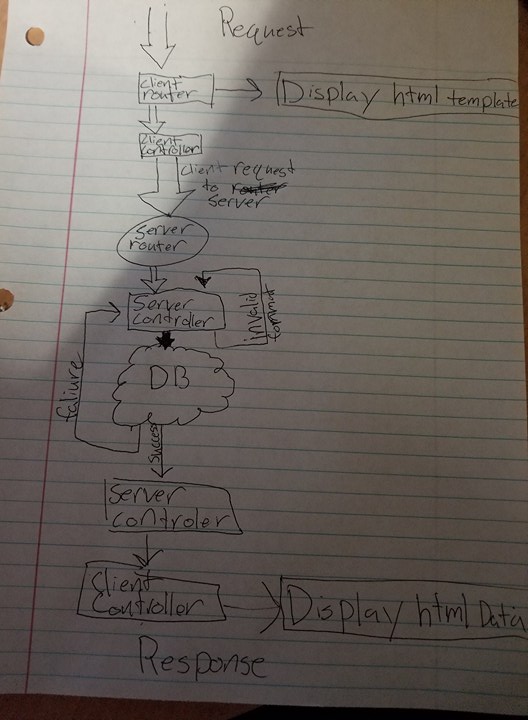 Request
client
router
Display html template
Client
Controller
client request
to router
server
Server
router
Server
controler
invalid
format
DB
faliure
success
Server
controler
Client
Controller
Display html Data
Response